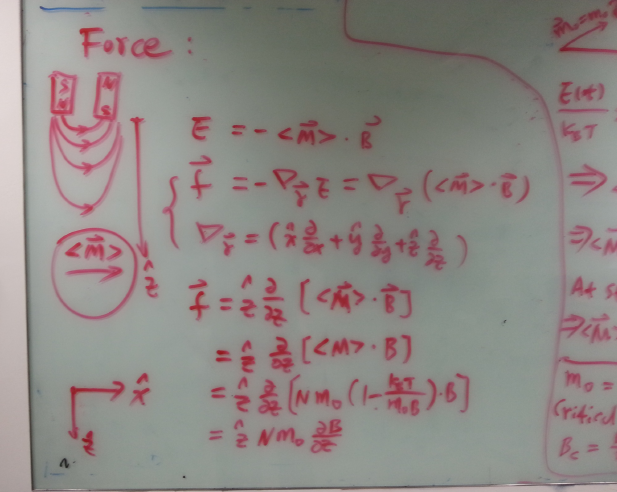 Force :
S N
N S
E = - <M⃗> · B⃗
f⃗ = - ∇_r⃗ E = ∇_r⃗ (<M⃗> · B⃗)
∇_r⃗ = (x̂ ∂/∂x + ŷ ∂/∂y + ẑ ∂/∂z)
<M⃗>
ẑ
f⃗ = ẑ ∂/∂z [<M⃗> · B⃗]
= ẑ ∂/∂z [<M> · B]
= ẑ ∂/∂z [N m₀ (1 - k_BT/m₀B) · B]
= ẑ N m₀ ∂B/∂z
x̂
ẑ
m⃗₀ = m₀
E(t)/k_BT =
⇒
⇒ <M
At s
⇒ <M⃗>
m₀ =
Critical
B_c =